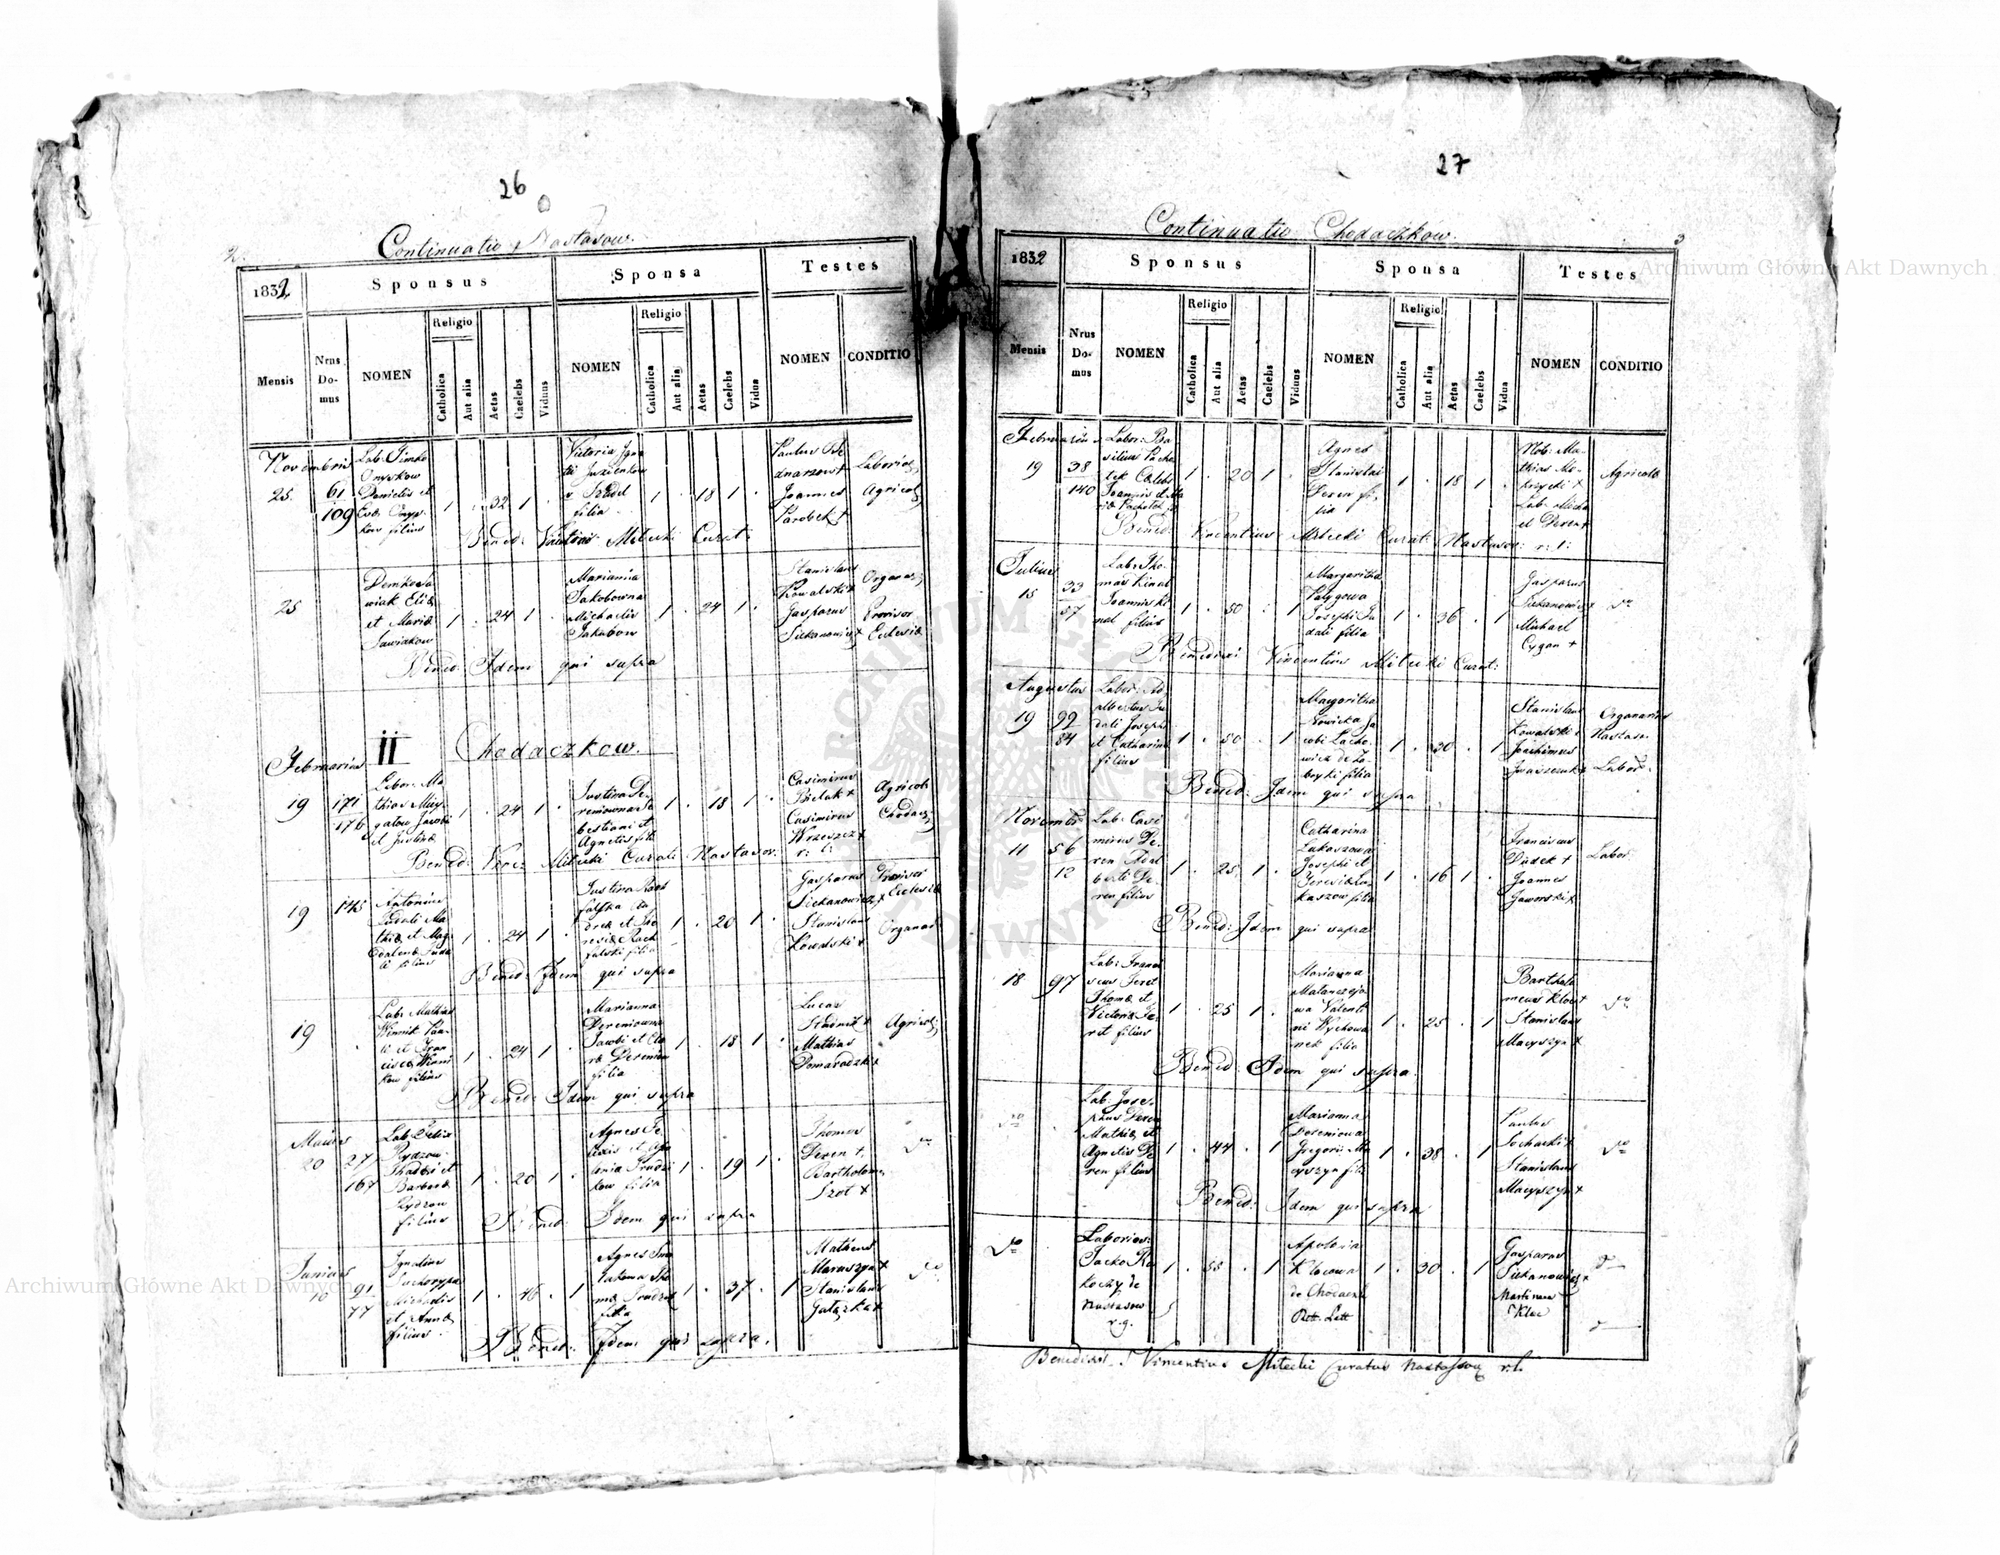 26
2.
Continuatio Nastasow.
1832
Sponsus
Sponsa
Testes
Mensis
Nrus Do- mus
NOMEN
Religio
Catholica
Aut alia
Aetas
Caelebs
Viduus
NOMEN
Religio
Catholica
Aut alia
Aetas
Caelebs
Vidua
NOMEN
CONDITIO
Novembris
25.
61
109
Danielis et
kow filius
1 . 32 1 .
Victoria
filia
1 . 18 1 .
Paulus Be
dnarzow +
Joannes
Parobek +
Agricol
Bened: Mitecki Curat:
25
et Mariæ
1 . 24 1 .
Marianna
Jakobowna
Michaelis
Jakubow
1 . 24 1 .
Stanislaus
Kowalski +
Gasparus
Siekanowicz +
Organar
Provisor
Eclesiæ
Bened: Idem qui supra
II Chodaczkow.
Februarius
19
171
176
Labor: Ma
thias
et Justinæ
1 . 24 1 .
Justina De
reniowna Se
bestiani et
Agnetis fili
1 . 18 1 .
Casimirus
Bielak +
Casimirus
Wrzeszcz +
r: l:
Agricol
Chodacz
Bened: Mitecki Curat: Nastasow:
19
145
Antonius
Judali Ma
thiæ et Mag
dalenæ Juda
li filius
1 . 24 1 .
Justina Rach
falska An
dreæ et The
resiæ Rach
falski filia
1 . 20 1 .
Gasparus
Siekanowicz +
Stanislaus
Kowalski +
Provisor
Eclesiæ
Organar
Bened: Idem qui supra
19
Lab: Mathias
Winnik Pau-
li et Fran
ciscæ Winni
kow filius
1 . 24 1 .
Marianna
Dereniowna
Jacobi et Cla
ræ Dereniow
filia
1 . 18 1 .
Lucas
Stadnik +
Mathias
Domaradzki +
Agricol
Bened: Idem qui supra
Maius
20
27
167
Lab: Felix
Rydzow
Thadei et
Barbaræ
Rydzow
filius
1 . 20 1 .
kow filia
1 . 19 1 .
Thomas
Deren +
Bartholom
Szot +
do
Bened: Idem qui supra
Junius
16
91
77
Ignatius
Michaelis
et Annæ
filius
1 . 46 . 1
filia
1 . 37 . 1
Matheus
Maruszyn +
Stanislaus
Galązka +
do
Bened: Idem qui supra.
27
3
Continuatio Chodaczkow.
1832
Sponsus
Sponsa
Testes
Mensis
Nrus Do- mus
NOMEN
Religio
Catholica
Aut alia
Aetas
Caelebs
Viduus
NOMEN
Religio
Catholica
Aut alia
Aetas
Caelebs
Vidua
NOMEN
CONDITIO
Februarius
19
38
140
Labor: Ba
silius Pacho
lek Cælebs
Joannis et Ma
riæ Pacholek
1 . 20 1 .
Agnes
Stanislai
Deren fi-
lia
1 . 18 1 .
Nob: Ma-
thias Mo-
krzycki +
Lab: Micha
el Deren +
Agricolæ
Bened: Vincentius Mitecki Curat: Nastasow: r: l:
Julius
15
33
57
Lab: Tho
mas Kinal
Joannis Ki
nal filius
1 . 50 . 1
Margaritha
Josephi Ju
dali filia
1 . 36 . 1
Gasparus
Siekanowicz +
Michael
Cygan +
do
Benedixi Vincentius Mitecki Curat:
Augustus
19
92
84
Labor: Ad
albertus Ju
dali Josephi
et Catharinæ
filius
1 . 50 . 1
Margaritha
Nowicka Ja
cobi Lacho
wicz de Za
boyki filia
1 . 30 . 1
Stanislaus
Kowalski +
Joachimus
Organarius
Nastasow
Labor:
Bened: Idem qui supra
Novembr
11
56
12
Lab: Casi
mirus De-
ren Adal
berti De-
ren filius
1 . 25 1 .
Catharina
Lukaszowa
Josephi et
Teresiæ Lu
kaszow filia
1 . 16 1 .
Franciscus
Dudek +
Joannes
Jaworski +
Labor:
Bened: Idem qui supra
18
97
Lab: Franci
scus Feret
Thomæ et
Victoriæ Fe
ret filius
1 . 25 1 .
Marianna
wa Valenti
ni Wychowa
nek filia
1 . 25 . 1
Bartholo
meus Kloc +
Stanislaus
Macyszyn +
do
Bened: Idem qui supra.
do
Lab: Jose-
phus Deren
Mathiæ et
Agnetis De
ren filius
1 . 44 . 1
Marianna
Dereniowa
Gregorii Ma
cyszyn fili
1 . 38 . 1
Paulus
Sochacki +
Stanislaus
Macyszyn +
do
Bened: Idem qui supra
do
Laborios:
Jacko Ko
Nastasow
r.g.
1 . 55 . 1
Apolonia
Klocowa
de Chodacz
Rit. Latt
1 . 30 . 1
Gasparus
Siekanowicz +
Martinus
Kloc
Benedixi Vincentius Mitecki Curatus Nastassow r.l.
Archiwum Główne Akt Dawnych
Archiwum Główne Akt Dawnych